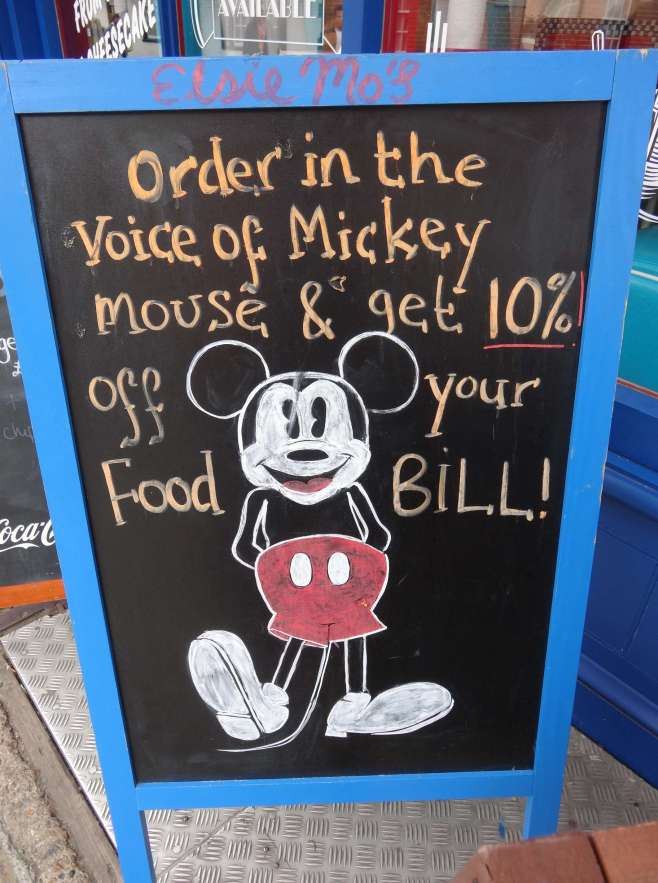 FROM
CHEESECAKE
AVAILABLE
Elsie Mo's
Order in the
Voice of Mickey
mouse & get 10%
off your
Food BILL!